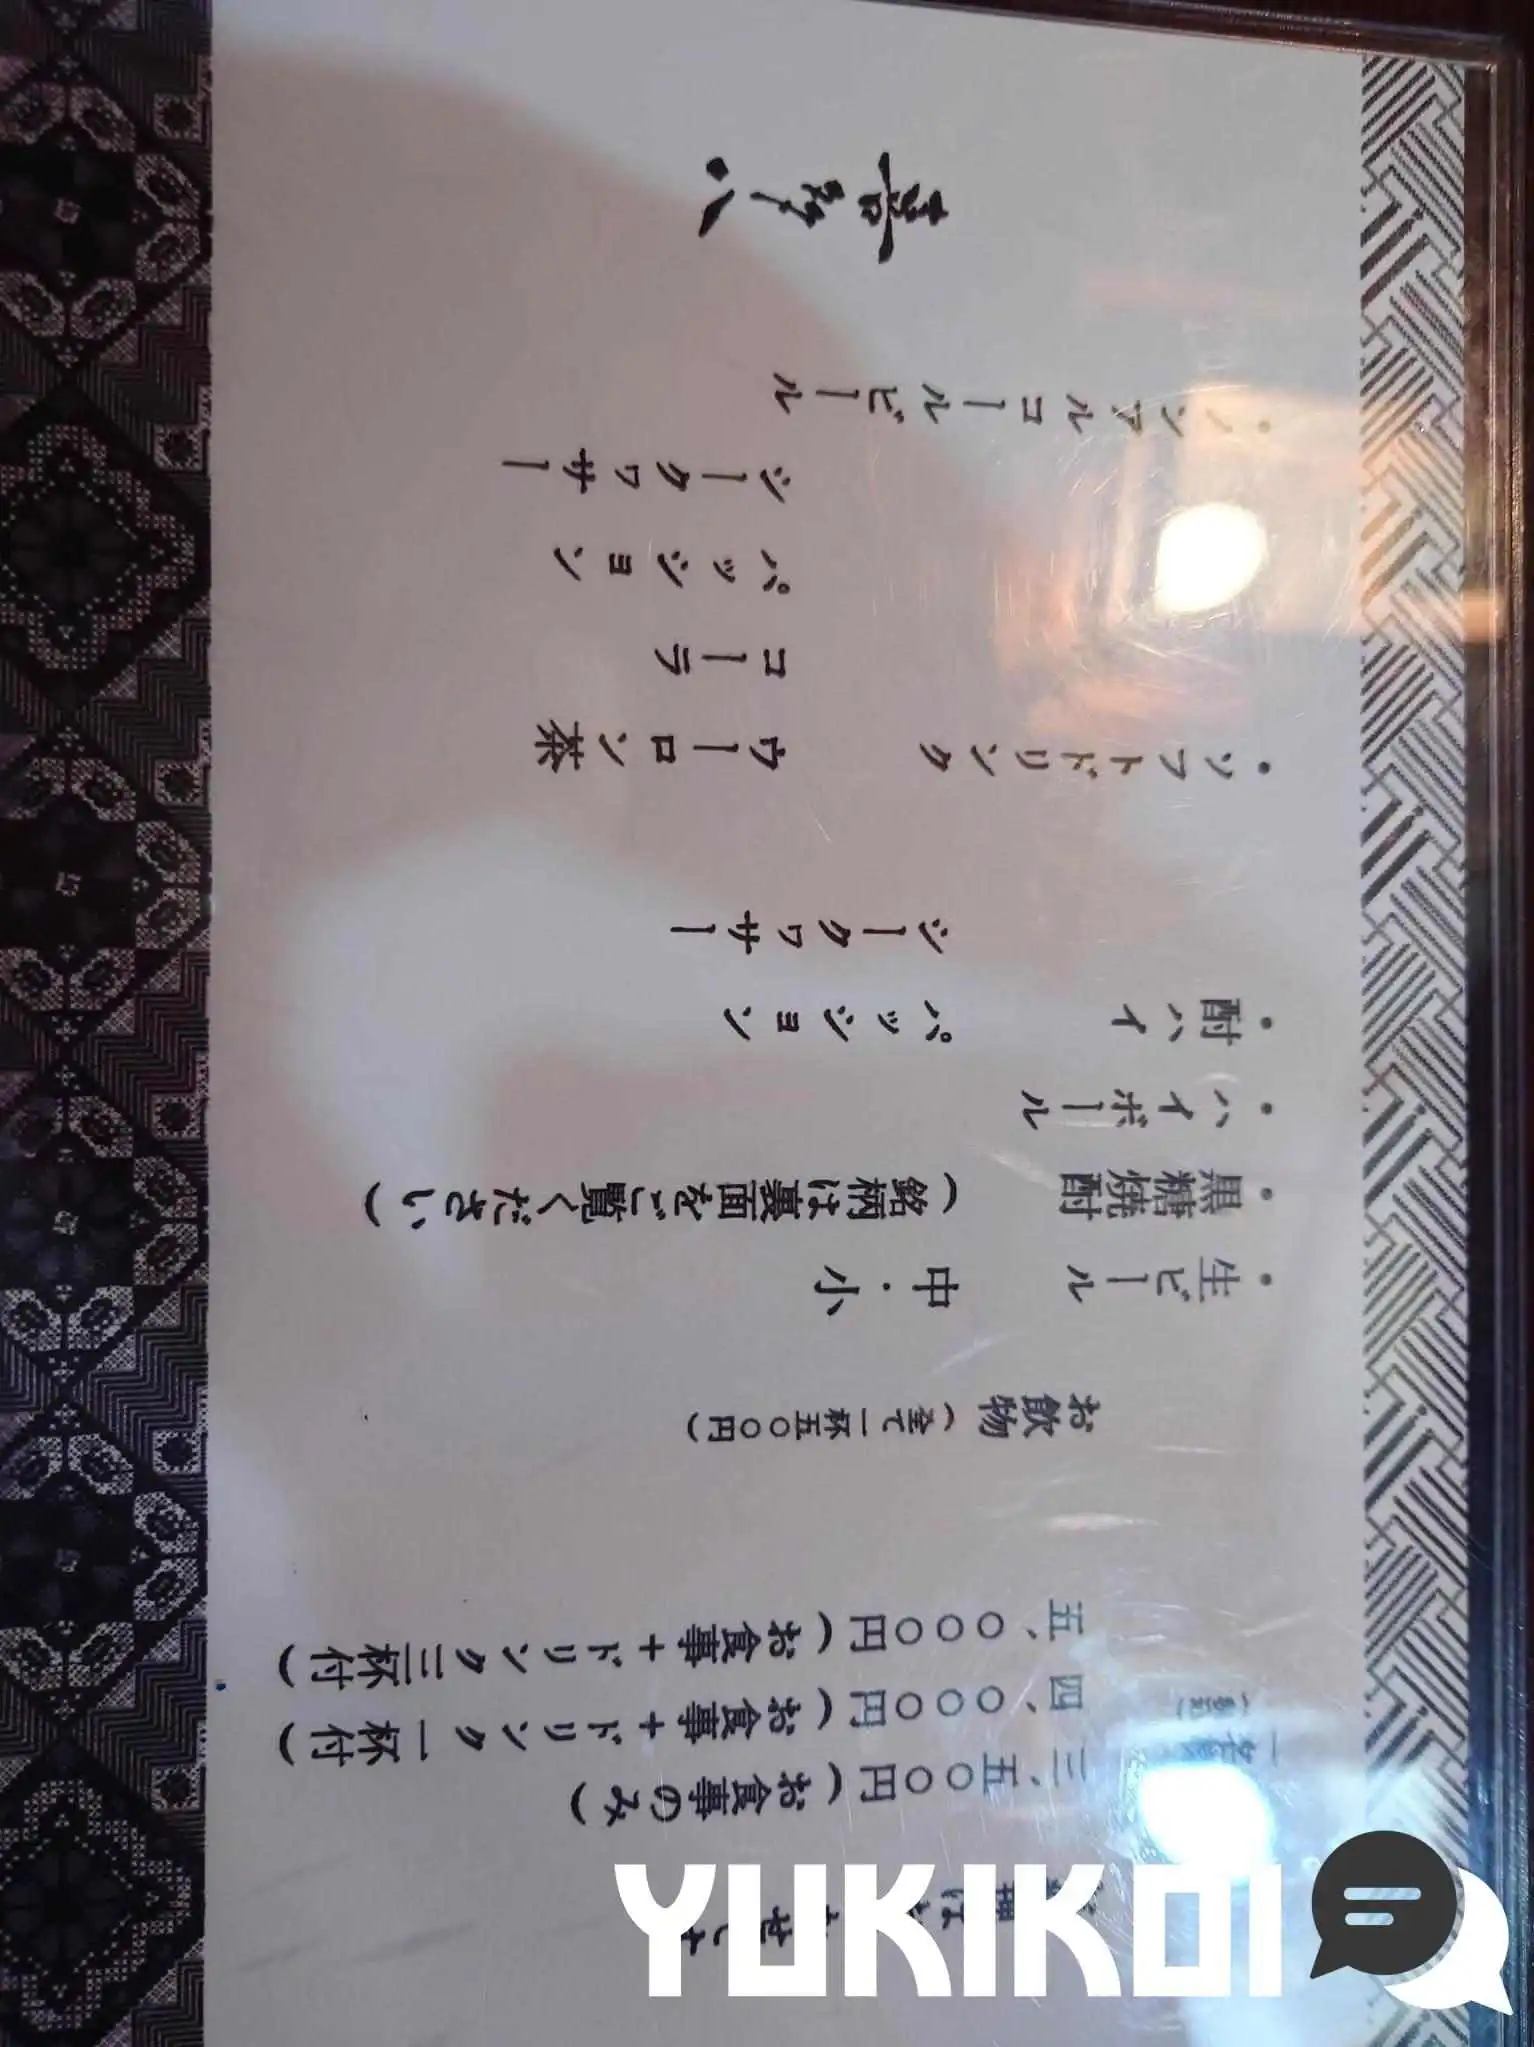 三、五〇〇円（お食事のみ）
四、〇〇〇円（お食事＋ドリンク一杯付）
五、〇〇〇円（お食事＋ドリンク三杯付）
お飲物（全て一杯五〇〇円）
・生ビール　中・小
・黒糖焼酎（銘柄は裏面をご覧ください）
・ハイボール
・酎ハイ　パッション
シークヮサー
・ソフトドリンク　ウーロン茶
コーラ
パッション
シークヮサー
・ノンアルコールビール
喜多八
YUKIKOI